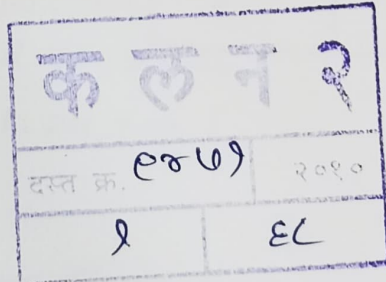 क ल न २
दस्त क्र. ९४७१ २०१०
१ ६८